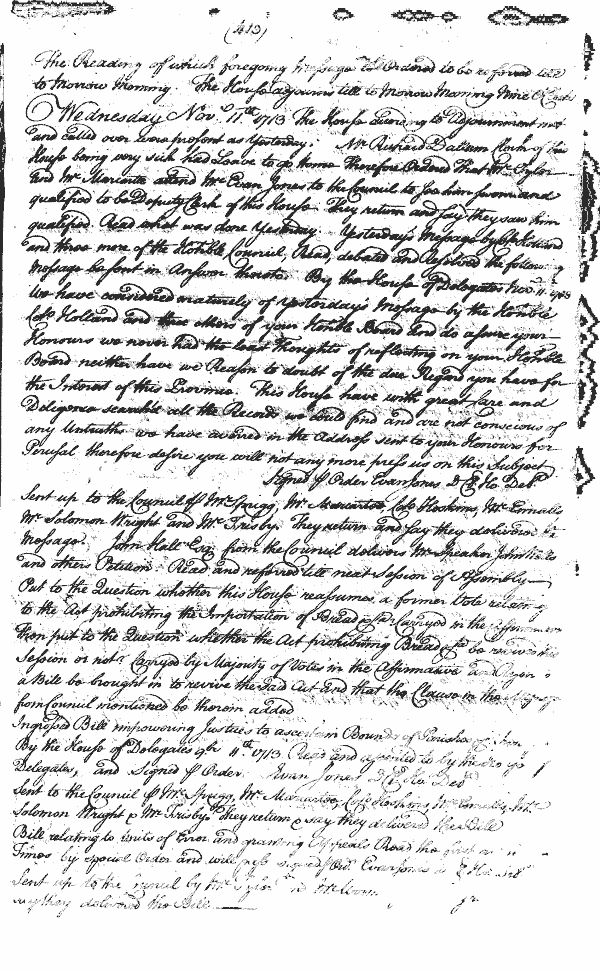 (413)
The Reading of which foregoing message was Ordered to be referred till
to morrow morning. The House adjourns till to Morrow Morning Nine O Clock
Wednesday Novr. 11th 1713 The House According to Adjournment met
and called over were present as Yesterday. Mr Richard Dallam Clerk of this
House being very sick had Leave to go home Therefore Ordered That Mr
and Mr Mariarte attend Mr Evan Jones to the Council to See him sworn and
qualified to be Deputy Clerk of this House They return and say they saw him
qualified Read what was done Yesterday Yesterday's Message by Colo Holland
and three more of the Honble Council, Read, debated and resolved the following
Message be sent in Answer thereto. By the House of Delegates Novr. 11th 1713
We have considered maturely of yesterday's Message by the Honble
Colo Holland and three others of your Honble Board and do assure your
Honours we never had the least Thoughts of reflecting on your Honble
Board neither have we Reason to doubt of the due Regard you have for
the Interest of this Province. This House have with great Care and
Diligence searcht all the Records we could find and are not conscious of
any Untruths we have averred in the Address sent to your Honours for
Perusal therefore desire you will not any more press us on this Subject
Signed p Order Evan Jones D Cl Ho. Del.
Sent up to the Council p Mr Sprigg, Mr Mariartee, Colo Hoskins, Mr
Mr Solomon Wright and Mr Frisby. They return and say they delivered the
Message. John Hall Esq. from the Council delivers Mr Speaker John
and others Petition Read and referred till next Session of Assembly
Put to the Question whether this House reassumes a former Vote relating
to the Act prohibiting the Importation of Bread &c Carryed in the Affirmative
Then put to the Question whether the Act prohibiting Bread &c be revived this
Session or not? Carryed by Majority of Votes in the Affirmative and
a Bill be brought in to revive the said Act and that the Clause in the Message
from Council mentioned be therein added
Ingrossed Bill impowering Justices to ascertain Bounds of Parishes
By the House of Delegates 9br 11th 1713 Read and assented to by the House of
Delegates, and Signed p Order. Evan Jones D Cl Ho. Del
Sent to the Council p Mr Sprigg, Mr Mariartee, Colo Hoskins, Mr
Solomon Wright & Mr Frisby They return & say they delivered the Bill
Bill relating to writs of Error and granting Appeals Read the first
Times by special Order and will pass signed p Ord. Evan Jones D Cl Ho. Del
Sent up to the Council by Mr
say they delivered the Bill